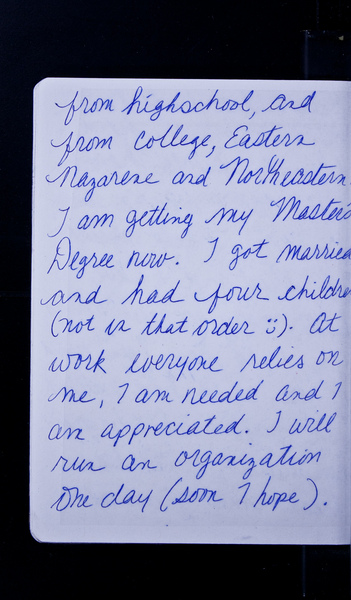 from highschool, and
from college, Eastern
Nazarene and Northeastern.
I am getting my Master's
Degree now. I got married
and had four children
(not in that order :)). At
work everyone relies on
me, I am needed and I
am appreciated. I will
run an organization
one day (soon I hope).